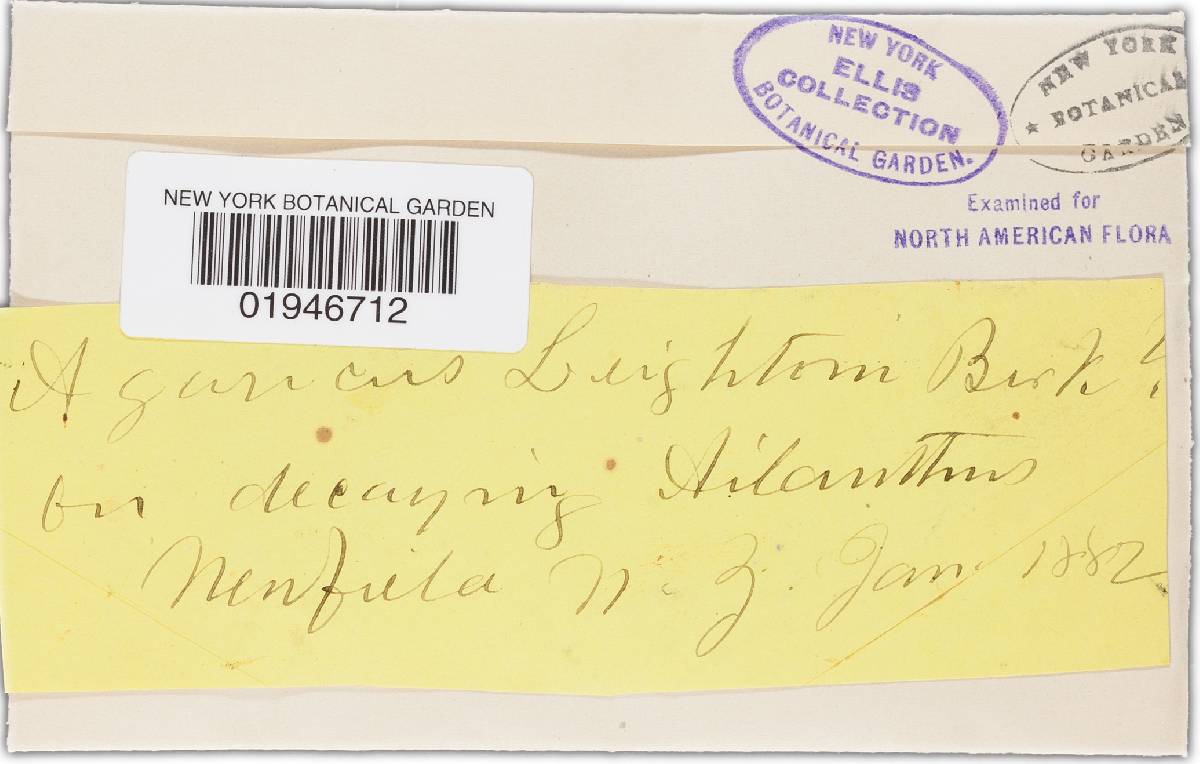 NEW YORK
ELLIS
COLLECTION
BOTANICAL GARDEN.
NEW YORK
★ BOTANICAL
GARDEN
Examined for
NORTH AMERICAN FLORA
NEW YORK BOTANICAL GARDEN
01946712
Agaricus Leightoni Berk ?
on decaying Ailanthus
Newfield N. J. Jan. 1882